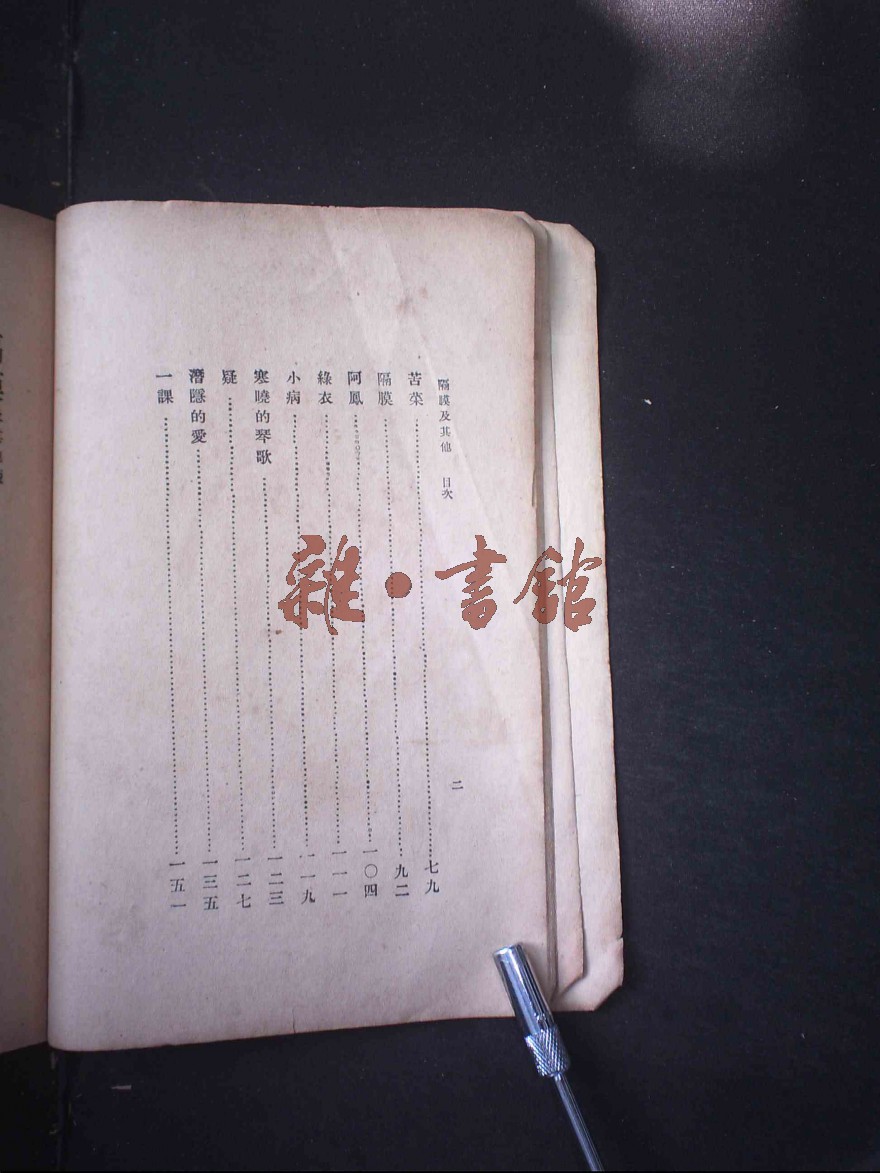 隔膜及其他 目次
二
苦菜⋯⋯七九
隔膜⋯⋯九二
阿鳳⋯⋯一〇四
綠衣⋯⋯一一一
小病⋯⋯一一九
寒曉的琴歌⋯⋯一二三
疑⋯⋯一二七
潛隱的愛⋯⋯一三五
一課⋯⋯一五一
雜·書館